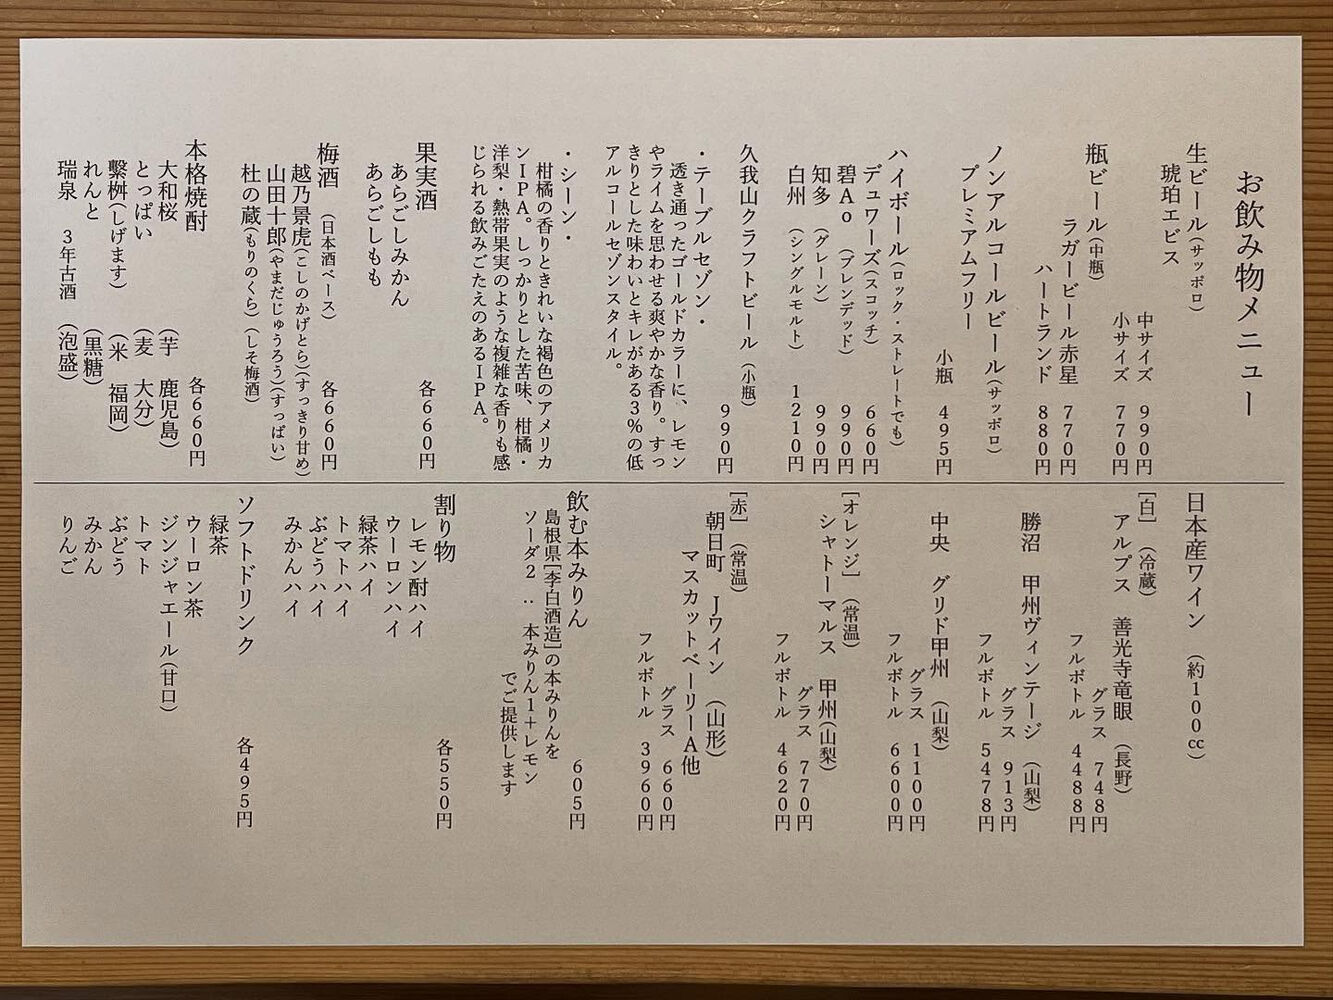 お飲み物メニュー
生ビール(サッポロ)
琥珀エビス
中サイズ 990円
小サイズ 770円
瓶ビール(中瓶)
ラガービール赤星 770円
ハートランド 880円
ノンアルコールビール(サッポロ)
プレミアムフリー
小瓶 495円
ハイボール(ロック・ストレートでも)
デュワーズ(スコッチ) 660円
碧Ao (ブレンデッド) 990円
知多 (グレーン) 990円
白州 (シングルモルト) 1210円
久我山クラフトビール (小瓶)
990円
・テーブルセゾン・
透き通ったゴールドカラーに、レモン
やライムを思わせる爽やかな香り。すっ
きりとした味わいとキレがある3%の低
アルコールセゾンスタイル。
・シーン・
柑橘の香りときれいな褐色のアメリカ
ンIPA。しっかりとした苦味、柑橘・
洋梨・熱帯果実のような複雑な香りも感
じられる飲みごたえのあるIPA。
果実酒 各660円
あらごしみかん
あらごしもも
梅酒 (日本酒ベース) 各660円
越乃景虎(こしのかげとら)(すっきり甘め)
山田十郎(やまだじゅうろう)(すっぱい)
杜の蔵(もりのくら)(しそ梅酒)
本格焼酎 各660円
大和桜 (芋 鹿児島)
とっぱい (麦 大分)
繫桝(しげます) (米 福岡)
れんと (黒糖)
瑞泉 3年古酒 (泡盛)
日本産ワイン (約100cc)
[白] (冷蔵)
アルプス 善光寺竜眼 (長野)
グラス 748円
フルボトル 4488円
勝沼 甲州ヴィンテージ (山梨)
グラス 913円
フルボトル 5478円
中央 グリド甲州 (山梨)
グラス 1100円
フルボトル 6600円
[オレンジ] (常温)
シャトーマルス 甲州(山梨)
グラス 770円
フルボトル 4620円
[赤] (常温)
朝日町 Jワイン (山形)
マスカットベーリーA他
グラス 660円
フルボトル 3960円
飲む本みりん 605円
島根県[李白酒造]の本みりんを
ソーダ2 : 本みりん1+レモン
でご提供します
割り物 各550円
レモン酎ハイ
ウーロンハイ
緑茶ハイ
トマトハイ
ぶどうハイ
みかんハイ
ソフトドリンク 各495円
緑茶
ウーロン茶
ジンジャエール(甘口)
トマト
ぶどう
みかん
りんご